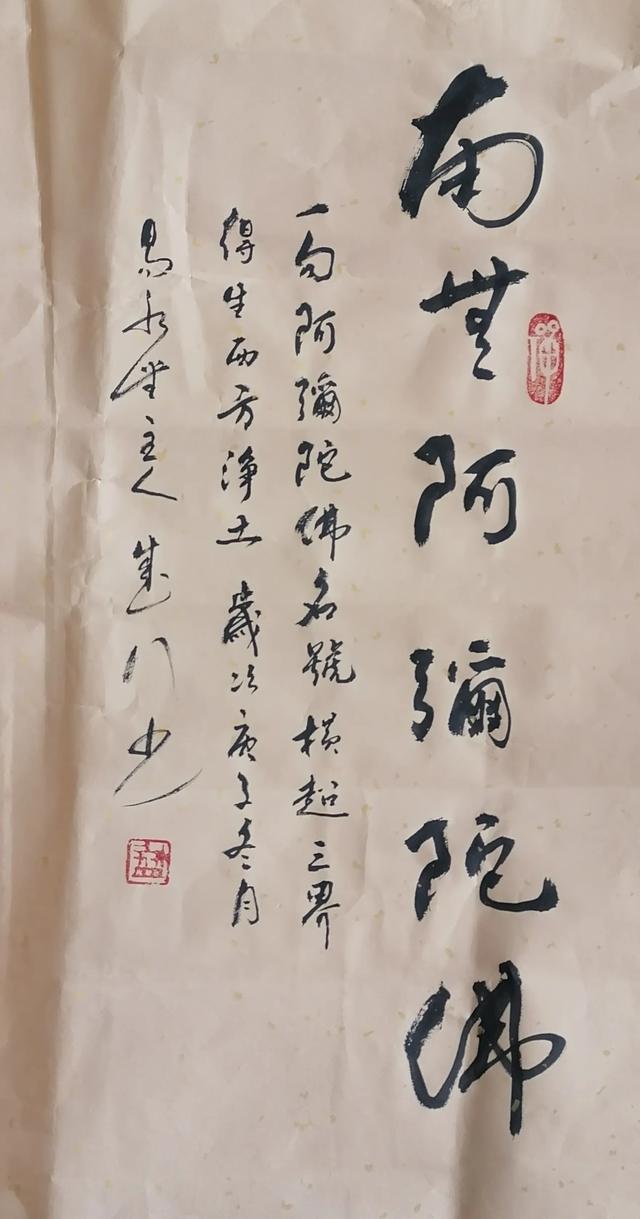 南無阿彌陀佛
一句阿彌陀佛名號橫超三界
得生西方淨土 歲次庚子冬月
易水堂主人
禪